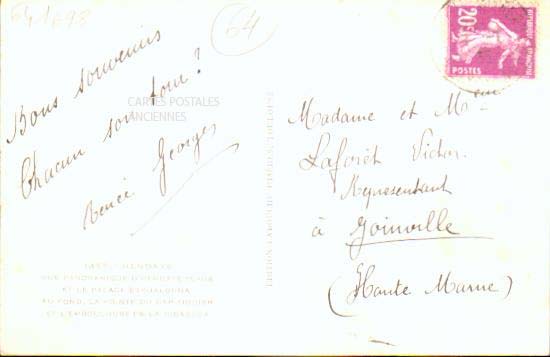 64
Bons souvenirs
Chacun son tour?
Georges
CARTES POSTALES
ANCIENNES
20c
POSTES
Madame et Mr
Laforêt Victor
Représentant
à Joinville
(Haute Marne)
HENDAYE
VUE PANORAMIQUE D'HENDAYE-PLAGE
ET LE PALACE ESKUALDUNA
AU FOND, LA POINTE DU CAP FIGUIER
ET L'EMBOUCHURE DE LA BIDASSOA